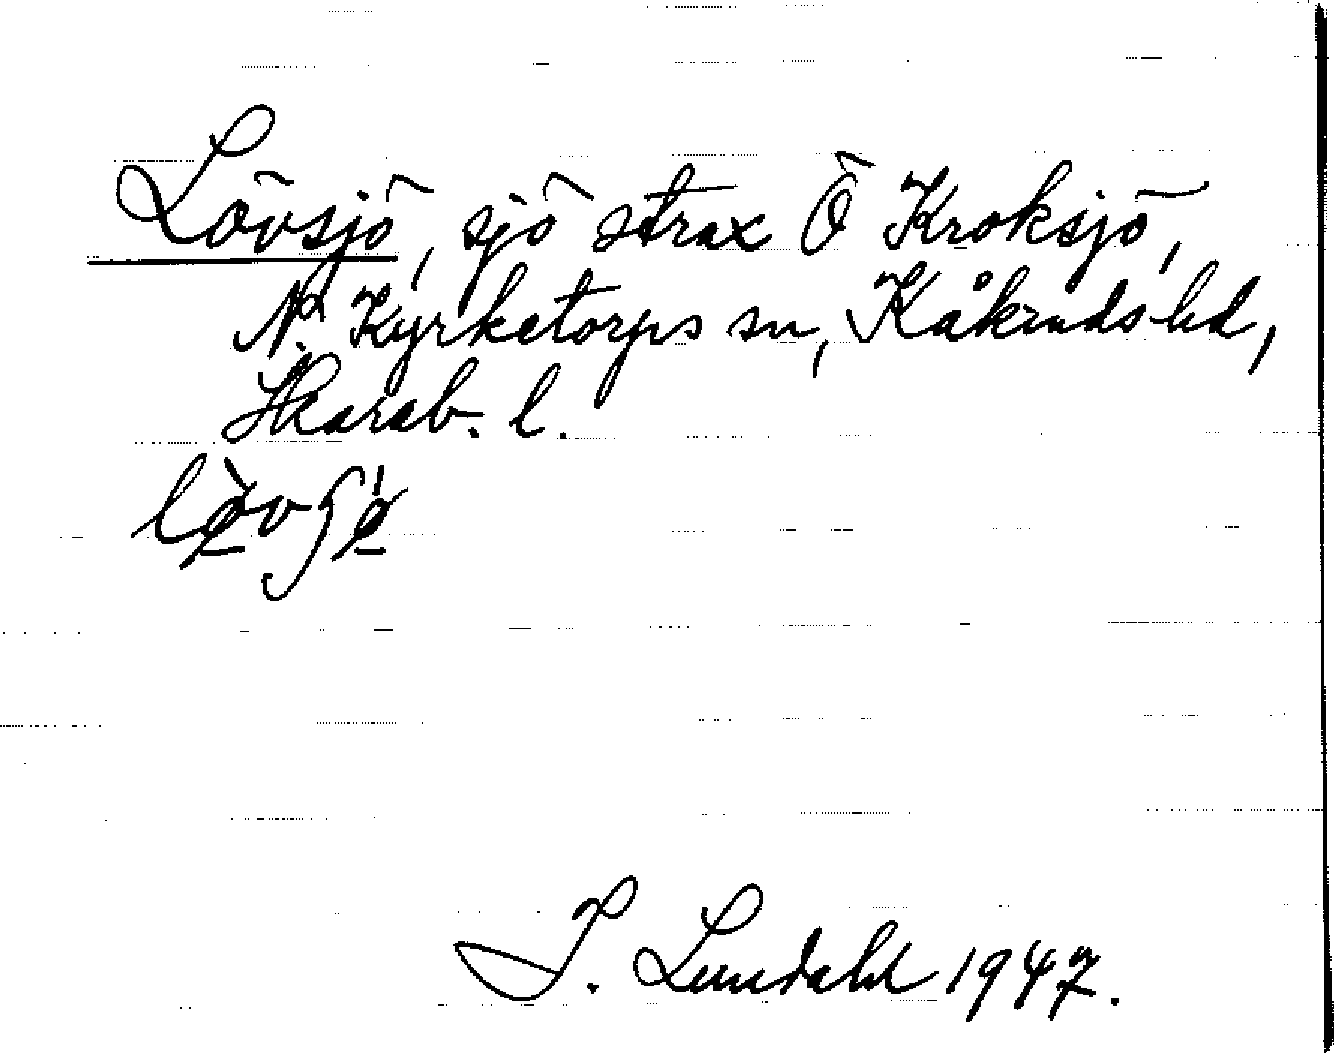 Lövsjö, sjö strax Ö Kroksjö,
N. Kyrketorps sn, Kåkinds hd,
Skarab. l.
I. Lundahl 1947.